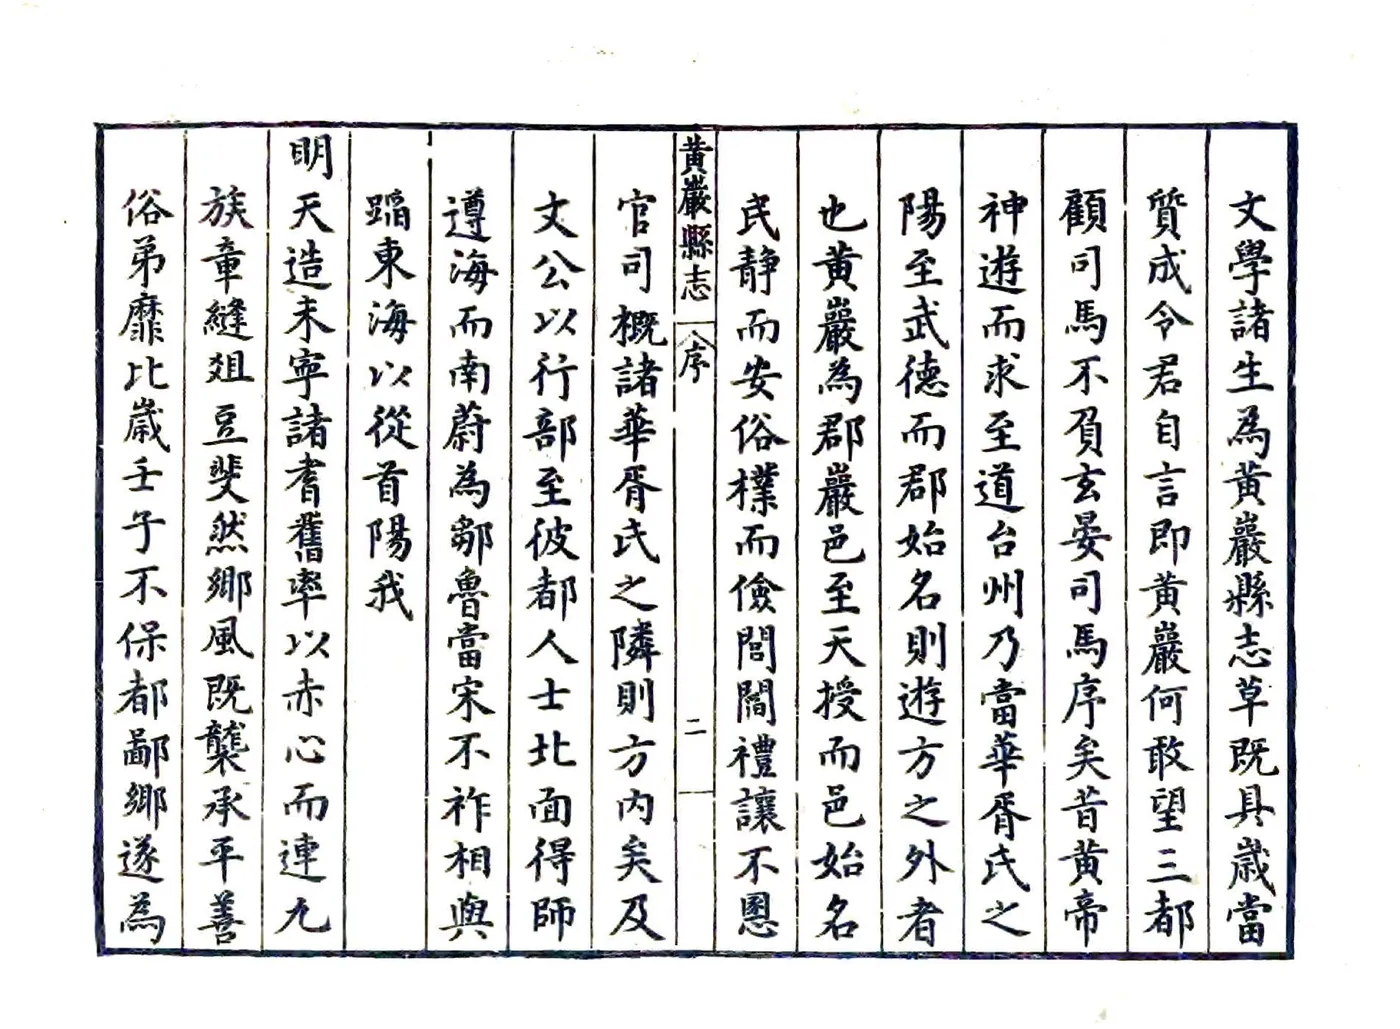 文學諸生為黃巖縣志草既具歲當
質成令君自言即黃巖何敢望三都
顧司馬不負玄晏司馬序矣昔黃帝
神遊而求至道台州乃當華胥氏之
陽至武德而郡始名則遊方之外者
也黃巖為郡巖邑至天授而邑始名
民靜而安俗樸而儉閭閻禮讓不慁
黃巖縣志
序
二
官司概諸華胥氏之隣則方內矣及
文公以行部至彼都人士北面得師
遵海而南蔚為鄒魯當宋不祚相與
蹈東海以從首陽我
明天造未寧諸耆舊率以赤心而連九
族章縫俎豆斐然鄉風既襲承平善
俗弟靡比歲壬子不保都鄙鄉遂為